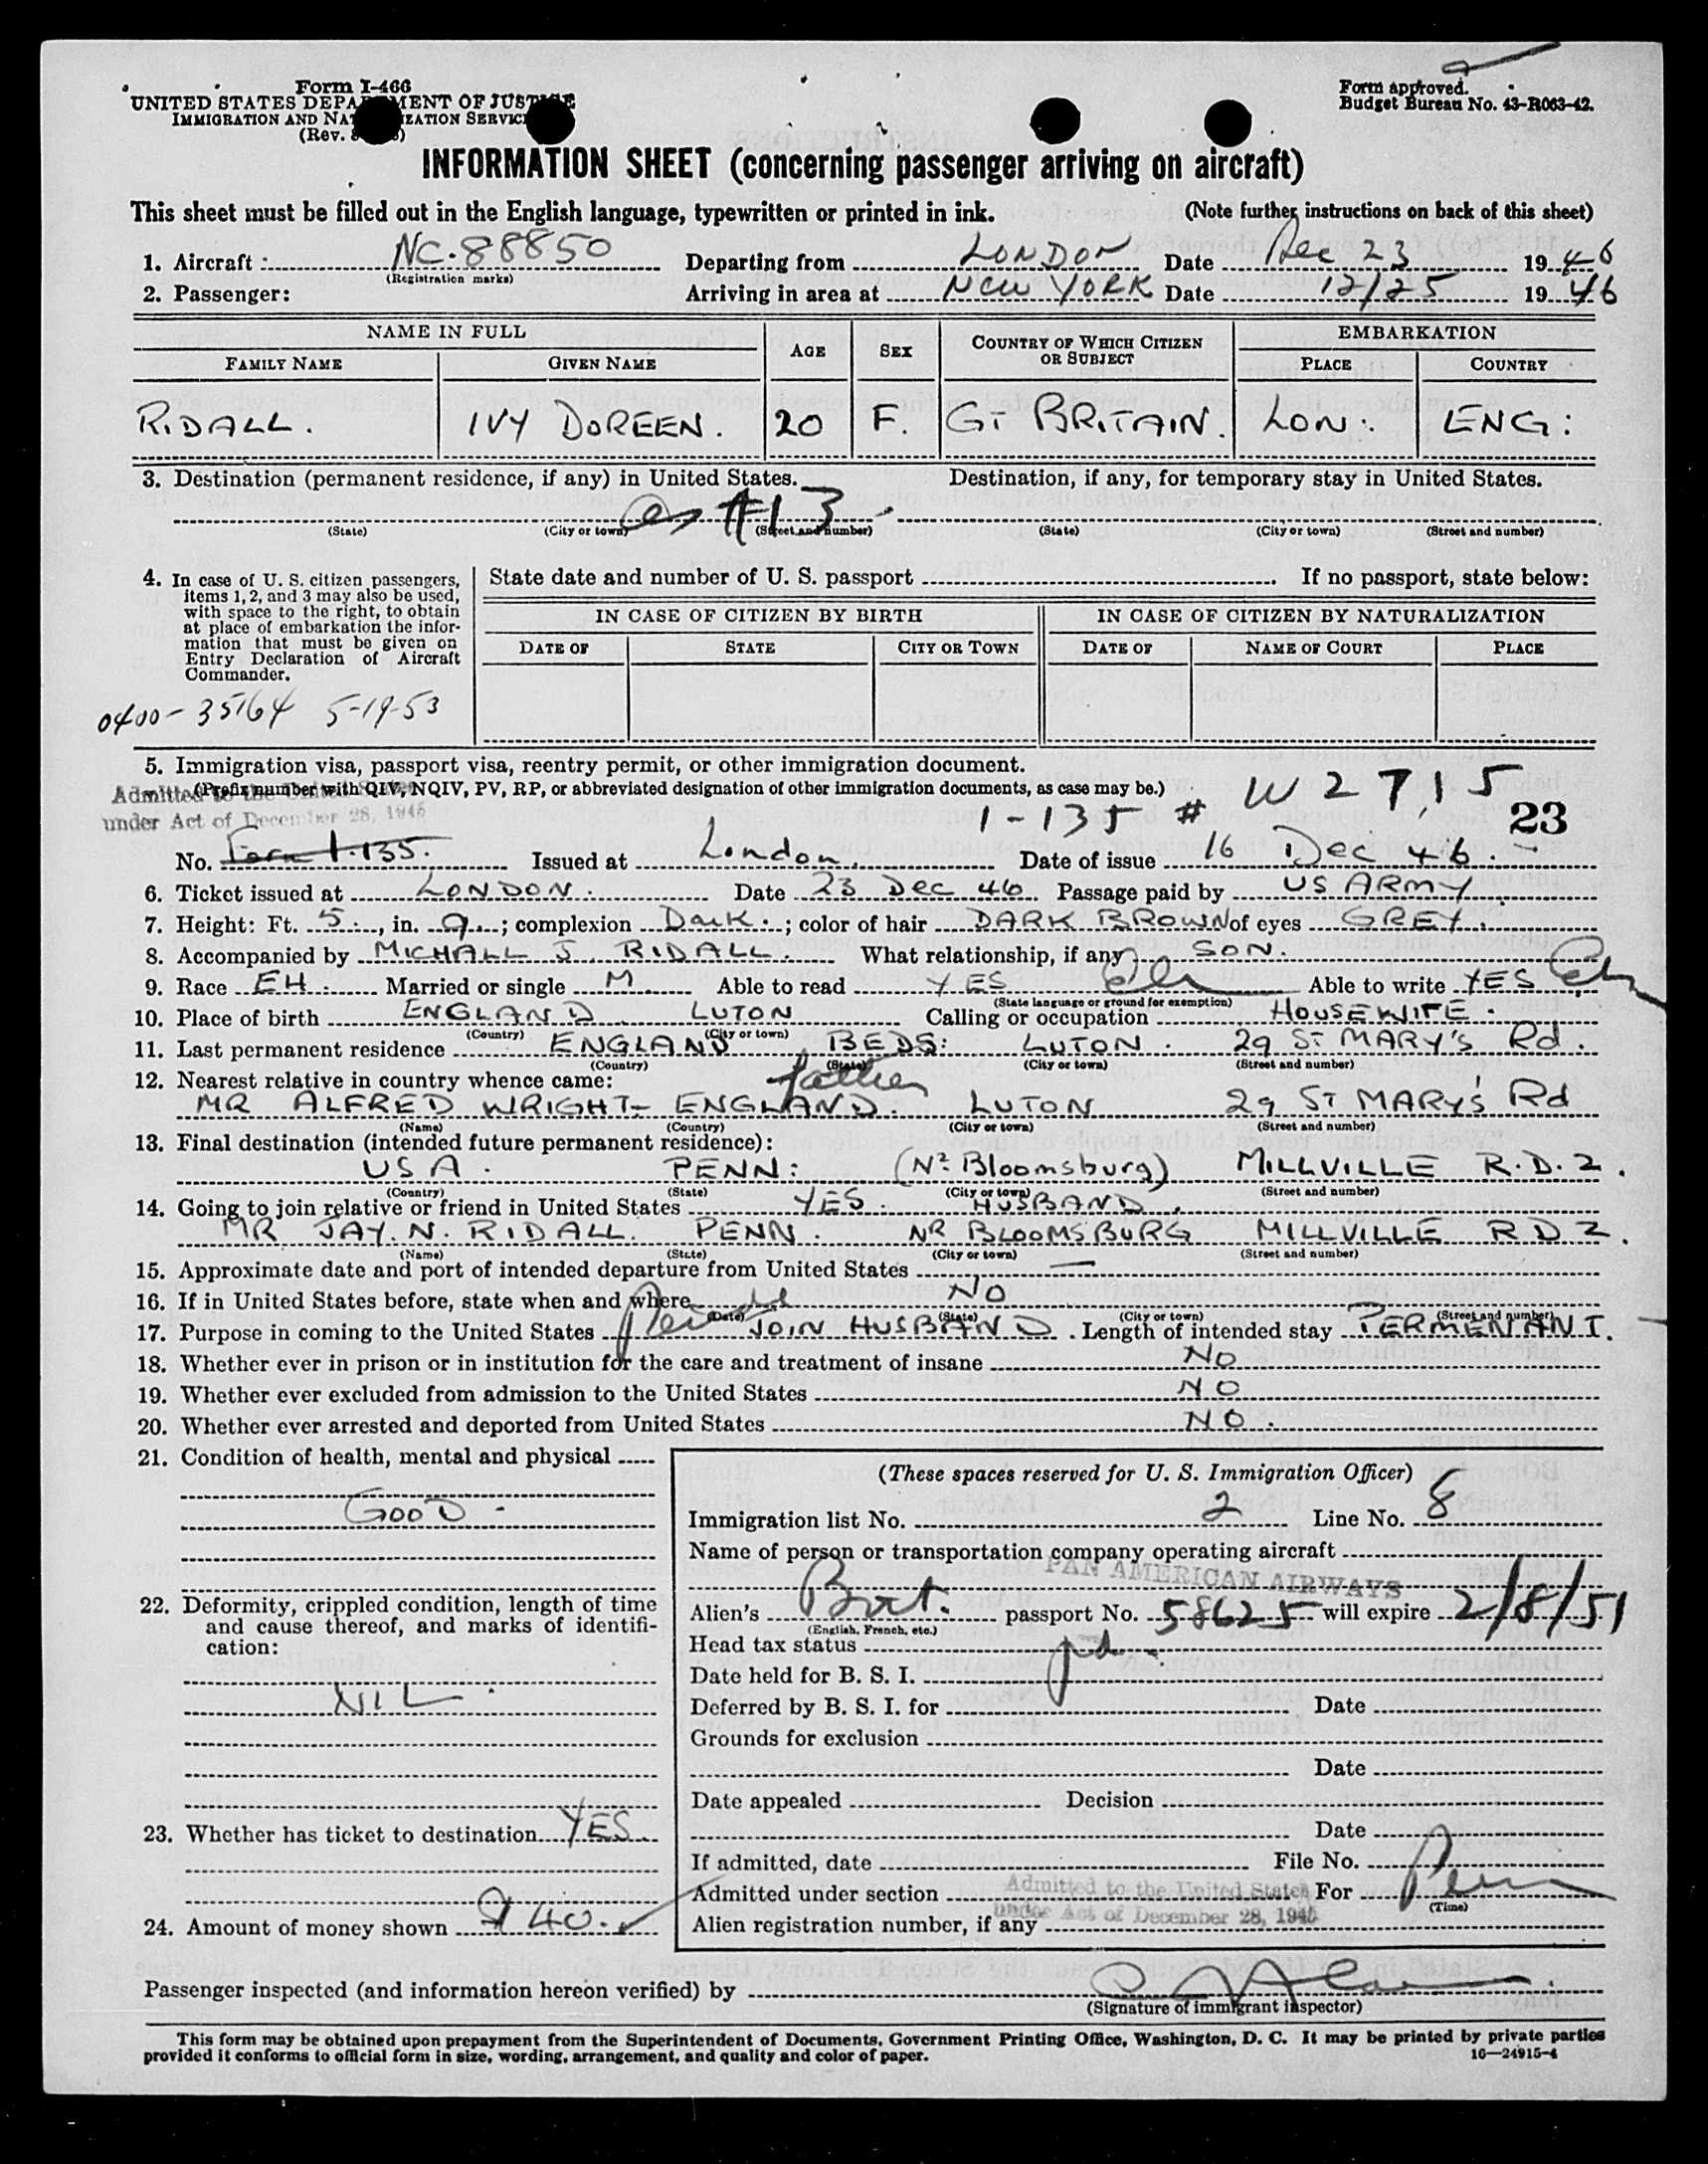 Form I-466
UNITED STATES DEPARTMENT OF JUSTICE
IMMIGRATION AND NATURALIZATION SERVICE
(Rev.
Form approved.
Budget Bureau No. 43-R063-42.
INFORMATION SHEET (concerning passenger arriving on aircraft)
This sheet must be filled out in the English language, typewritten or printed in ink. (Note further instructions on back of this sheet)
1. Aircraft : NC-88850 Departing from LONDON Date Dec 23 1946
(Registration marks)
2. Passenger: Arriving in area at NEW YORK Date 12/25 1946
NAME IN FULL AGE SEX COUNTRY OF WHICH CITIZEN OR SUBJECT EMBARKATION
FAMILY NAME GIVEN NAME PLACE COUNTRY
RIDALL. IVY DOREEN. 20 F. GT BRITAIN. LON: ENG:
3. Destination (permanent residence, if any) in United States. Destination, if any, for temporary stay in United States.
#13
(State) (City or town) (Street and number) (State) (City or town) (Street and number)
4. In case of U. S. citizen passengers,
items 1, 2, and 3 may also be used,
with space to the right, to obtain
at place of embarkation the infor-
mation that must be given on
Entry Declaration of Aircraft
Commander.
State date and number of U. S. passport If no passport, state below:
IN CASE OF CITIZEN BY BIRTH IN CASE OF CITIZEN BY NATURALIZATION
DATE OF STATE CITY OR TOWN DATE OF NAME OF COURT PLACE
0400-35164 5-19-53
5. Immigration visa, passport visa, reentry permit, or other immigration document.
(Prefix number with QIV, NQIV, PV, RP, or abbreviated designation of other immigration documents, as case may be.) W2715
Admitted to the United States
under Act of December 28, 1945
1-135 # 23
No. Form 1-135. Issued at London. Date of issue 16 Dec 46.
6. Ticket issued at LONDON. Date 23 Dec 46 Passage paid by US ARMY
7. Height: Ft. 5, in. 9; complexion Dark; color of hair DARK BROWN of eyes GREY.
8. Accompanied by MICHALL J. RIDALL. What relationship, if any SON.
9. Race EH. Married or single M. Able to read YES Able to write YES Eh
(State language or ground for exemption)
10. Place of birth ENGLAND. LUTON Calling or occupation HOUSEWIFE.
(Country) (City or town)
11. Last permanent residence ENGLAND BEDS: LUTON. 29 ST MARY'S Rd.
(Country) (State) (City or town) (Street and number)
12. Nearest relative in country whence came: father
MR ALFRED WRIGHT- ENGLAND. LUTON 29 ST MARY'S Rd
(Name) (Country) (City or town) (Street and number)
13. Final destination (intended future permanent residence):
USA. PENN: (Nr Bloomsburg) MILLVILLE R.D.2.
(Country) (State) (City or town) (Street and number)
14. Going to join relative or friend in United States YES. HUSBAND.
MR JAY. N. RIDALL. PENN. NR BLOOMSBURG MILLVILLE R D 2.
(Name) (State) (City or town) (Street and number)
15. Approximate date and port of intended departure from United States —
16. If in United States before, state when and where NO
(Date) (State) (City or town) (Street and number)
17. Purpose in coming to the United States Reside JOIN HUSBAND. Length of intended stay PERMENANT.
18. Whether ever in prison or in institution for the care and treatment of insane NO
19. Whether ever excluded from admission to the United States NO
20. Whether ever arrested and deported from United States NO.
21. Condition of health, mental and physical
GOOD -
22. Deformity, crippled condition, length of time
and cause thereof, and marks of identifi-
cation:
NIL.
23. Whether has ticket to destination YES
24. Amount of money shown $40.
(These spaces reserved for U. S. Immigration Officer)
Immigration list No. 2 Line No. 8
Name of person or transportation company operating aircraft
PAN AMERICAN AIRWAYS
Alien's Brit. passport No. 58625 will expire 2/8/51
(English, French, etc.)
Head tax status pd.
Date held for B. S. I.
Deferred by B. S. I. for Date
Grounds for exclusion
Date
Date appealed Decision
Date
If admitted, date File No.
Admitted under section Admitted to the United States For Perm
under Act of December 28, 1945 (Time)
Alien registration number, if any
Passenger inspected (and information hereon verified) by
(Signature of immigrant inspector)
This form may be obtained upon prepayment from the Superintendent of Documents, Government Printing Office, Washington, D. C. It may be printed by private parties
provided it conforms to official form in size, wording, arrangement, and quality and color of paper. 16—24915-4